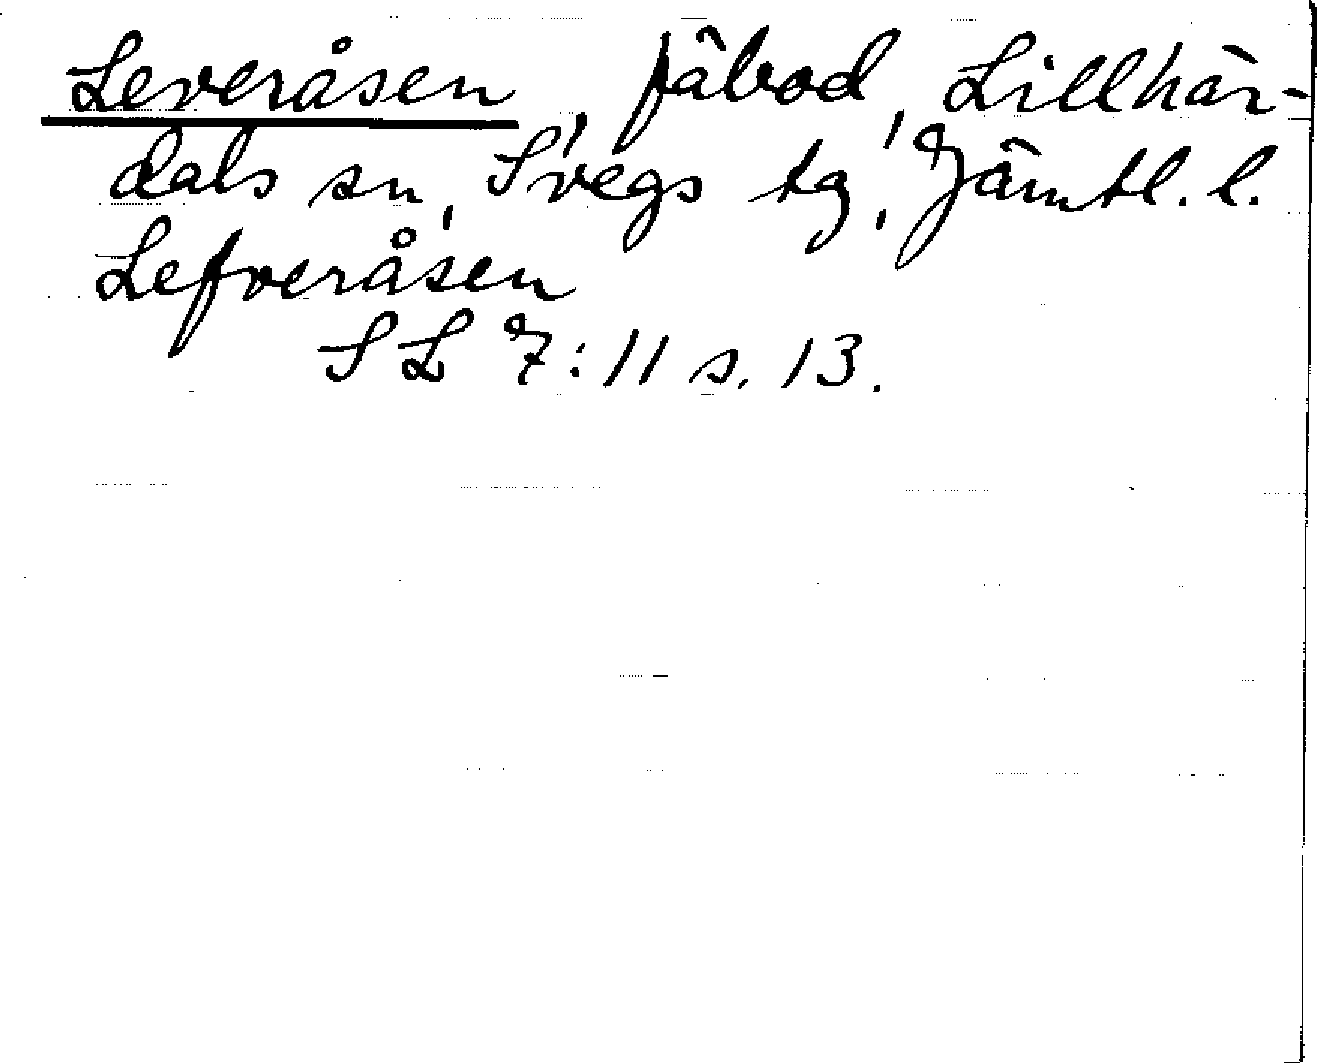 Leveråsen, fäbod, Lillhär-
dals sn, Svegs tg, Jämtl. l.
Lefveråsen
SL 7:11 s. 13.